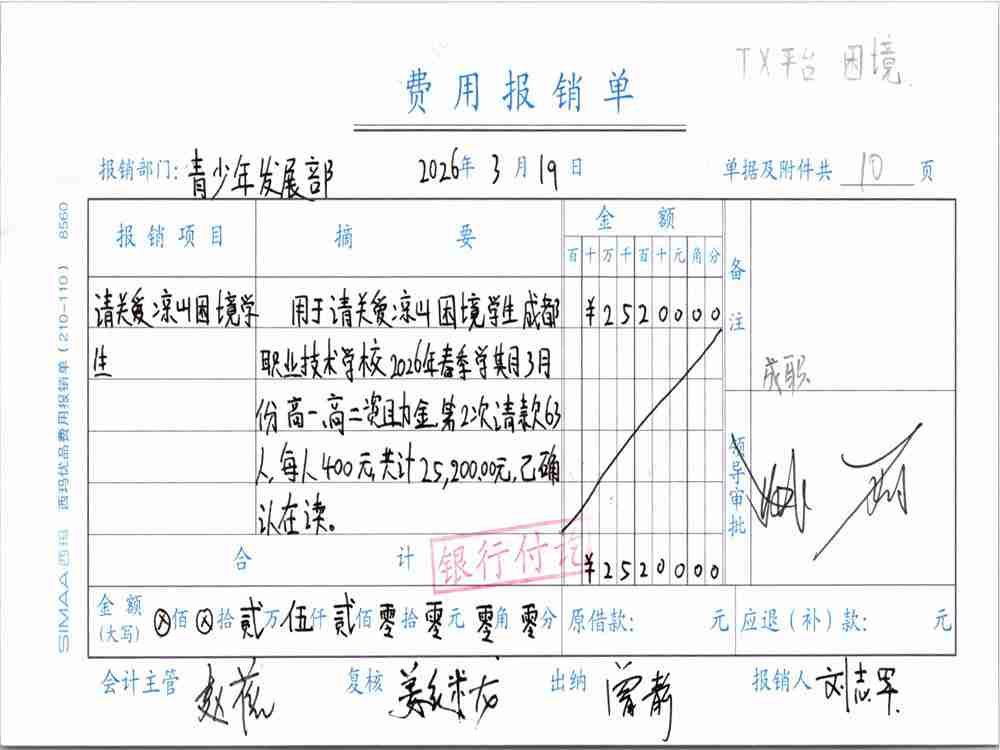 TX平台 困境
费用报销单
报销部门: 青少年发展部 2026年 3月 19日 单据及附件共 10 页
报销项目 摘要 金额 备注
百十万千百十元角分
请关爱凉山困境学生 用于请关爱凉山困境学生成都 ¥2520000
职业技术学校2026年春季学期3月
份高一、高二资助金第2次请款63
人,每人400元,共计25,200.00元,已确
认在读。
成职
领导审批
合计 ¥2520000
银行付讫
金额(大写) ⊗佰⊗拾贰万伍仟贰佰零拾零元零角零分 原借款: 元 应退(补)款: 元
会计主管 复核 出纳 曾静 报销人 刘志军
SIMAA西玛 西玛优品费用报销单(210-110) 8560